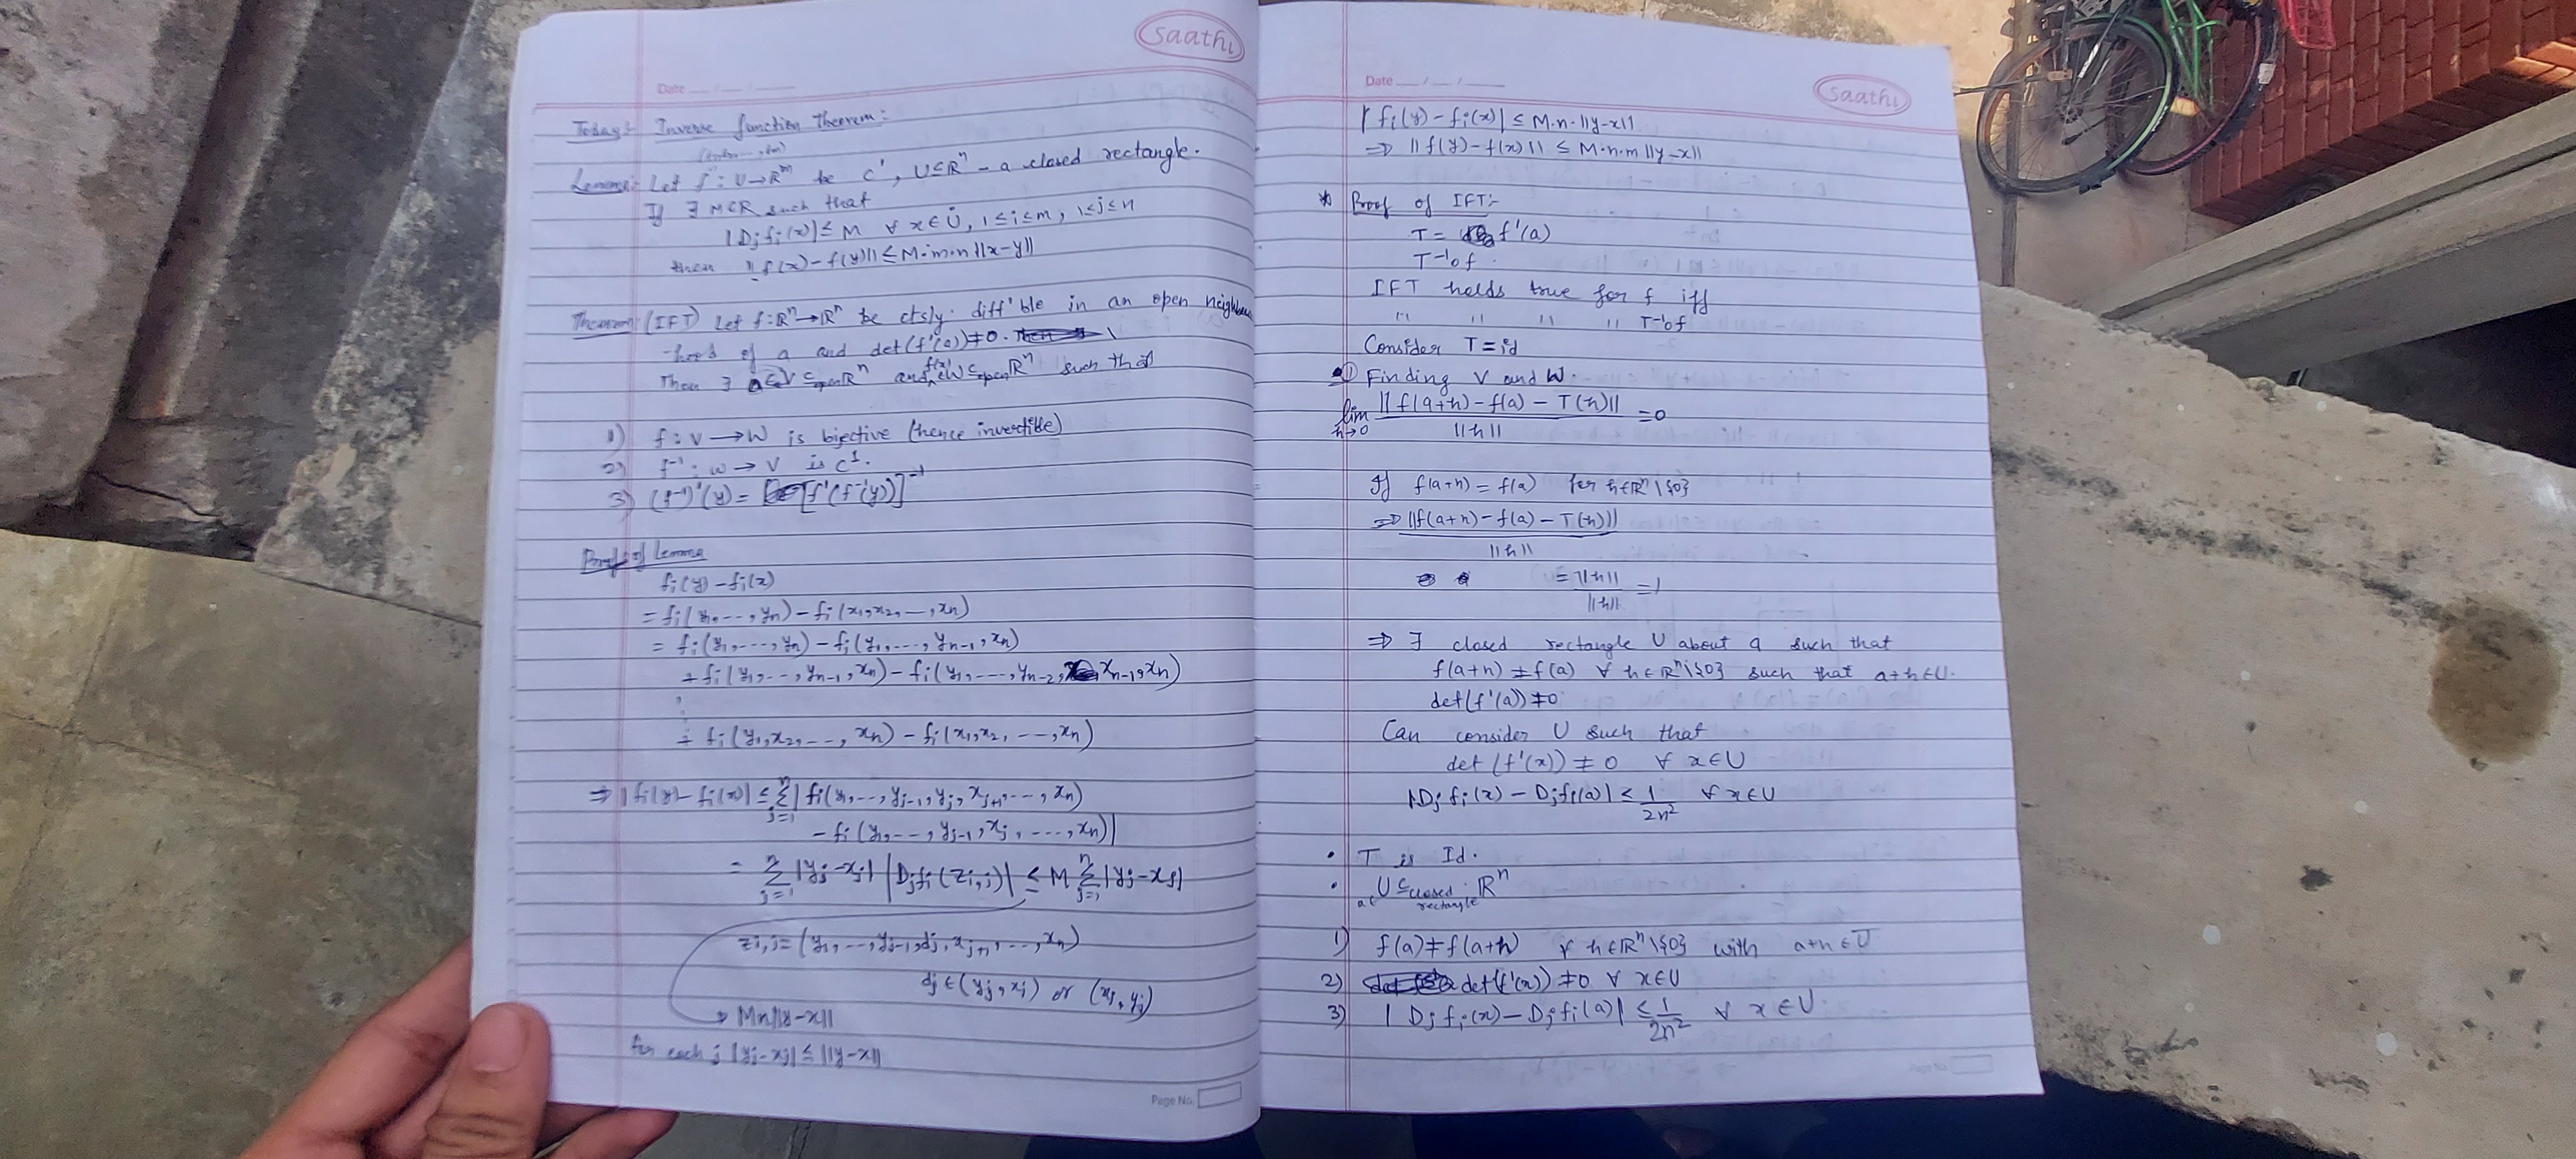 Saathi
Date
Today: Inverse function theorem:-
Lemma: Let f: U→Rᵐ be C', U⊆Rⁿ - a closed rectangle.
If ∃ M∈R such that
|Djfi(x)| ≤ M ∀ x∈U̇, 1≤i≤m, 1≤j≤n
then ||f(x)-f(y)|| ≤ M·m·n||x-y||
Theorem: (IFT) Let f: Rⁿ→Rⁿ be ctsly. diff'ble in an open neighbou
-hood of a and det(f'(a))≠0.
Then ∃ a∈V ⊆open Rⁿ and f(a)∈W ⊆open Rⁿ such that
1) f: V → W is bijective (hence invertible)
2) f⁻¹: W → V is C¹.
3) (f⁻¹)'(y) = [f'(f⁻¹(y))]⁻¹
Proof of Lemma
fi(y) - fi(x)
= fi(y1, ..., yn) - fi(x1, x2, ..., xn)
= fi(y1, ..., yn) - fi(y1, ..., yn-1, xn)
+ fi(y1, ..., yn-1, xn) - fi(y1, ..., yn-2, xn-1, xn)
+ fi(y1, x2, ..., xn) - fi(x1, x2, ..., xn)
⇒ |fi(y) - fi(x)| ≤ Σ j=1 n |fi(y1, ..., yj-1, yj, xj+1, ..., xn)
- fi(y1, ..., yj-1, xj, ..., xn)|
= Σ j=1 n |yj-xj| |Djfi(zi,j)| ≤ M Σ j=1 n |yj-xj|
zi,j = (y1, ..., yj-1, dj, xj+1, ..., xn)
dj ∈ (yj, xj) or (xj, yj)
→ Mn||y-x||
for each j |yj-xj| ≤ ||y-x||
Page No.
Saathi
Date
|fi(y) - fi(x)| ≤ M·n·||y-x||
⇒ ||f(y) - f(x)|| ≤ M·n·m||y-x||
* Proof of IFT:-
T = f'(a)
T⁻¹∘f
IFT holds true for f iff
" " " " T⁻¹∘f
Consider T = id
1) Finding V and W.
lim h→0 ||f(a+h) - f(a) - T(h)|| / ||h|| = 0
If f(a+h) = f(a) for h∈Rⁿ\{0}
⇒ ||f(a+h) - f(a) - T(h)|| / ||h||
= ||h|| / ||h|| = 1
⇒ ∃ closed rectangle U about a such that
f(a+h) ≠ f(a) ∀ h∈Rⁿ\{0} such that a+h∈U.
det(f'(a)) ≠ 0
Can consider U such that
det(f'(x)) ≠ 0 ∀ x∈U
|Djfi(x) - Djfi(a)| < 1/2n² ∀ x∈U
• T is Id.
• a∈U ⊆closed rectangle Rⁿ
1) f(a) ≠ f(a+h) ∀ h∈Rⁿ\{0} with a+h∈U
2) det(f'(x)) ≠ 0 ∀ x∈U
3) |Djfi(x) - Djfi(a)| ≤ 1/2n² ∀ x∈U.
Page No.